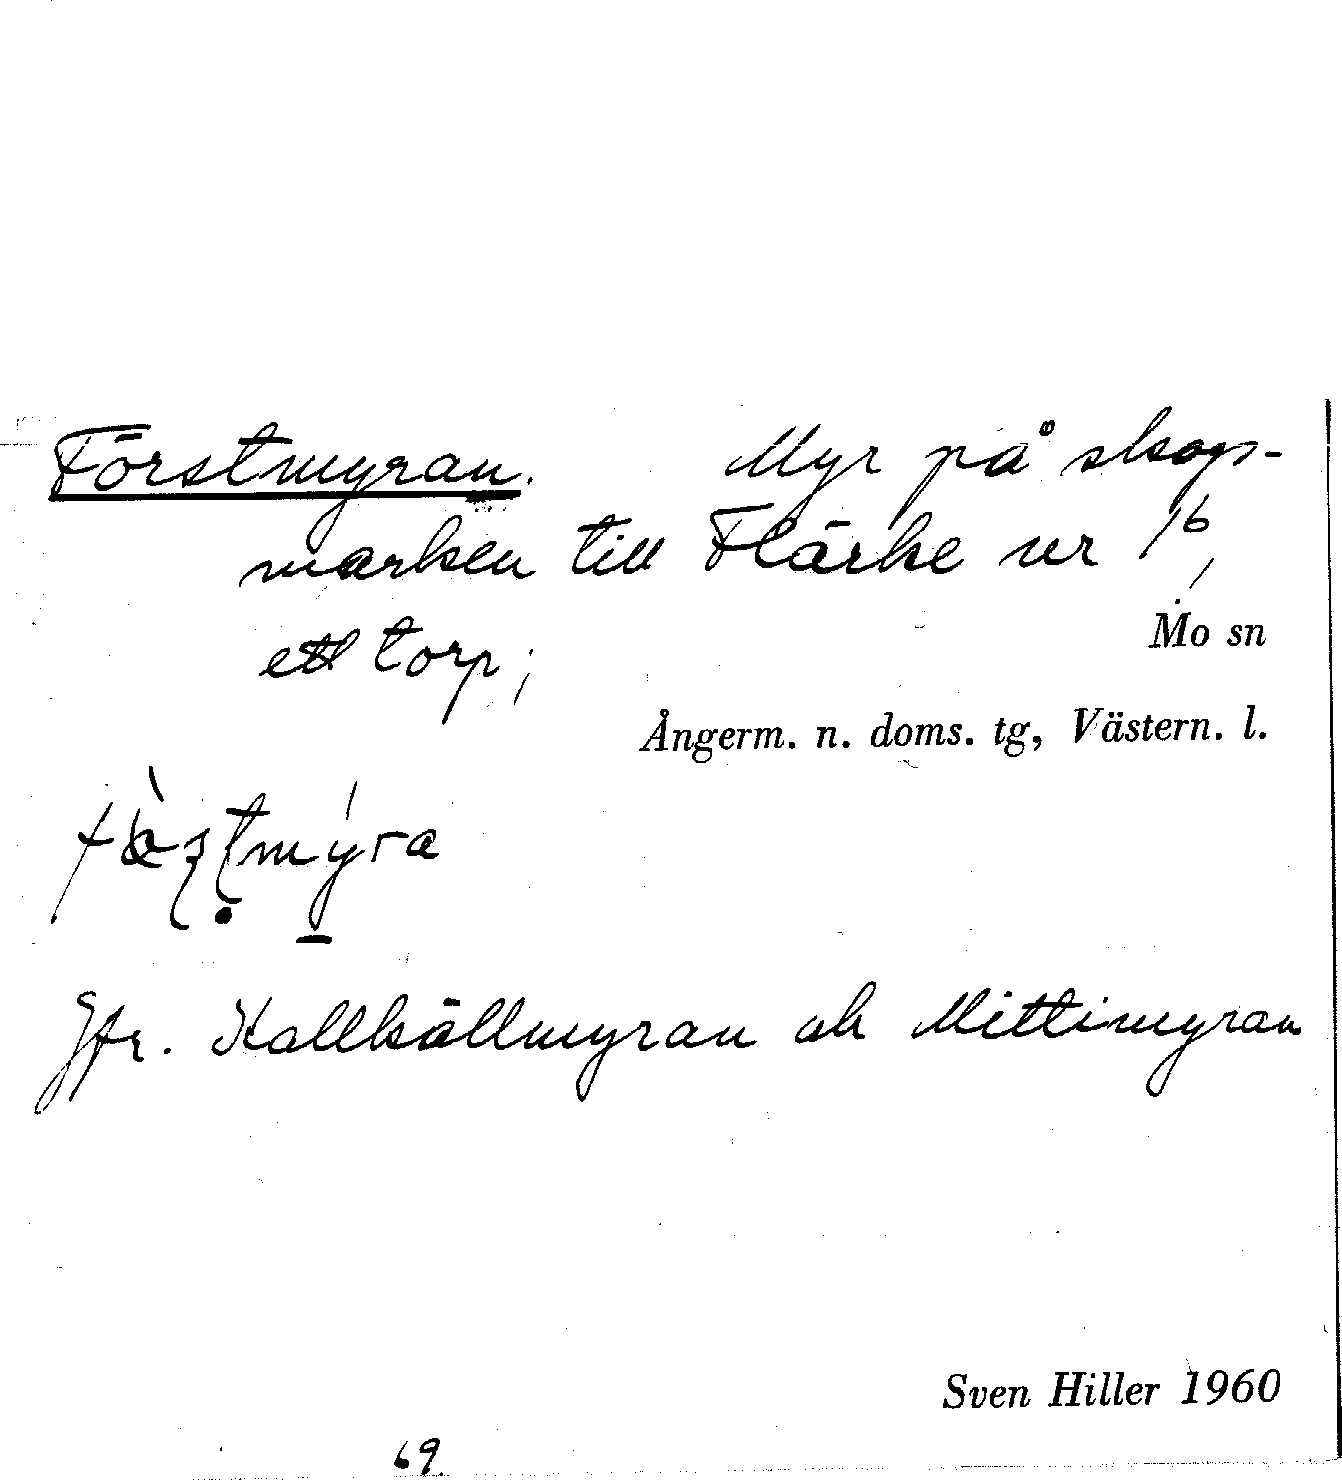 Förstmyran. Myr på skogs-
marken till Flärke nr 16,
ett torp;
Mo sn
Ångerm. n. doms. tg, Västern. l.
Jfr. Kallkällmyran ok Mittimyran
Sven Hiller 1960
69